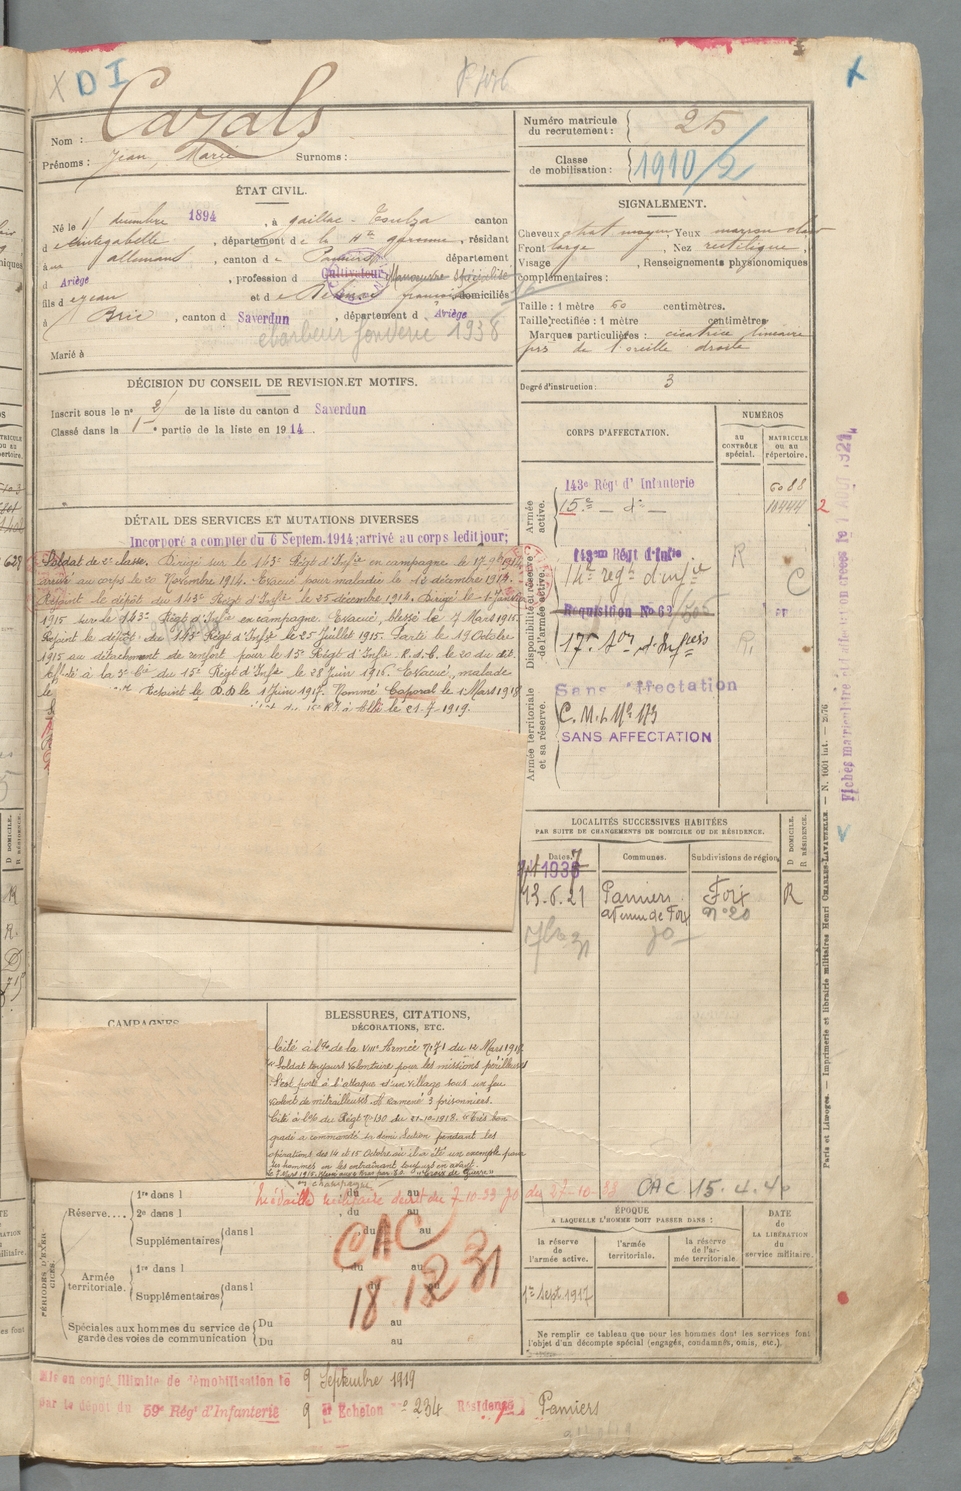 X D I
Cazals
Nom :
Prénoms : Jean, Marie Surnoms :
Numéro matricule du recrutement : 25
Classe de mobilisation : 1910/2
ÉTAT CIVIL.
Né le 1 décembre 1894, à gaillac-Toulza canton
d e Cintegabelle, département de la Hte garonne, résidant
à allemans, canton de Pamiers département
d Ariège, profession d Cultivateur Manoeuvre spécialisé
fils de Jean et de domiciliés
à Brie, canton d Saverdun, département d Ariège
ébarbeur fonderie 1938
Marié à
SIGNALEMENT.
Cheveux chat moyen, Yeux marron clair
Front large, Nez rectiligne,
Visage , Renseignements physionomiques
complémentaires :
Taille : 1 mètre 60 centimètres.
Taille rectifiée : 1 mètre centimètres
Marques particulières : cicatrice linéaire
près de l'oreille droite
Degré d'instruction : 3
DÉCISION DU CONSEIL DE REVISION ET MOTIFS.
Inscrit sous le n° 2 de la liste du canton d Saverdun
Classé dans la 1re partie de la liste en 1914.
CORPS D'AFFECTATION.
NUMÉROS
AU CONTRÔLE spécial.
MATRICULE OU AU répertoire.
Armée active.
143e Régt d'Infanterie 6088
15e — do — 10444 2
Disponibilité et réserve de l'armée active.
143em Régt d'Infie R
14e regt d'infie C
Requisition No 62
17e d'Infie R
Armée territoriale et sa réserve.
Sans affectation
C.M.I. No 173
SANS AFFECTATION
DÉTAIL DES SERVICES ET MUTATIONS DIVERSES
Incorporé a compter du 6 Septem. 1914; arrivé au corps ledit jour;
Soldat de 2e classe. Dirigé sur le 143e Régt d'Infie en campagne le 17 9bre 1914
arrivé au corps le 20 Novembre 1914. Evacué pour maladie le 13 décembre 1914.
Rejoint le dépôt du 143e Régt d'Infie le 25 décembre 1914. Dirigé le 1 Janvier
1915 sur le 143e Régt d'Infie en campagne. Evacué blessé le 7 Mars 1915.
Rejoint le dépôt du 143e Régt d'Infie le 25 Juillet 1915. Parti le 19 Octobre
1915 au détachement de renfort pour le 15e Régt d'Infie. R.d.C. le 20 du dit.
Affecté à la 3e Cie du 15e Régt d'Infie le 28 Juin 1916. Evacué, malade
le Rejoint le D.D. le 1 Juin 1917. Nommé Caporal le 1 Mars 1918
le 21-7-1919.
LOCALITÉS SUCCESSIVES HABITÉES
PAR SUITE DE CHANGEMENTS DE DOMICILE OU DE RÉSIDENCE.
Dates. Communes. Subdivisions de région
D DOMICILE. R RÉSIDENCE.
13.6.21 Pamiers Foix R
avenue de Foix n°20
CAMPAGNES
BLESSURES, CITATIONS,
DÉCORATIONS, ETC.
Cité à l'de de la VIIIe Armée n°71 du 12 Mars 1918
"Soldat toujours volontaire pour les missions périlleuses
S'est porté à l'attaque d'un village sous un feu
violent de mitrailleuses. A ramené 3 prisonniers.
Cité à l'de du Régt n°130 du 21-10-1918. "Très bon
gradé a commandé sa demi section pendant les
opérations des 14 et 15 Octobre où il a été un exemple pour
ses hommes en les entraînant toujours en avant.
"Croix de Guerre"
Champagne
Médaille militaire décret du 7-10-33 JO du 27-10-33 CAC 15.4.40
PÉRIODES D'EXERCICES.
Réserve.... 1re dans l , du au
2e dans l , du au
Supplémentaires dans l , du au
Armée territoriale. 1re dans l , du au
Supplémentaires dans l du au
Spéciales aux hommes du service de garde des voies de communication Du au
Du au
CAC
18.12.31
ÉPOQUE
A LAQUELLE L'HOMME DOIT PASSER DANS :
la réserve de l'armée active.
l'armée territoriale.
la réserve de l'armée territoriale.
DATE de LA LIBÉRATION du service militaire.
1er Sept. 1917
Ne remplir ce tableau que pour les hommes dont les services font
l'objet d'un décompte spécial (engagés, condamnés, omis, etc.).
Mis en congé illimité de démobilisation le 9 Septembre 1919
par le dépôt du 59e Régt d'Infanterie 9e Echelon no 234 Résidence Pamiers
Paris et Limoges. — Imprimerie et librairie militaires Henri CHARLES-LAVAUZELLE — N. 1001 int. — 2576